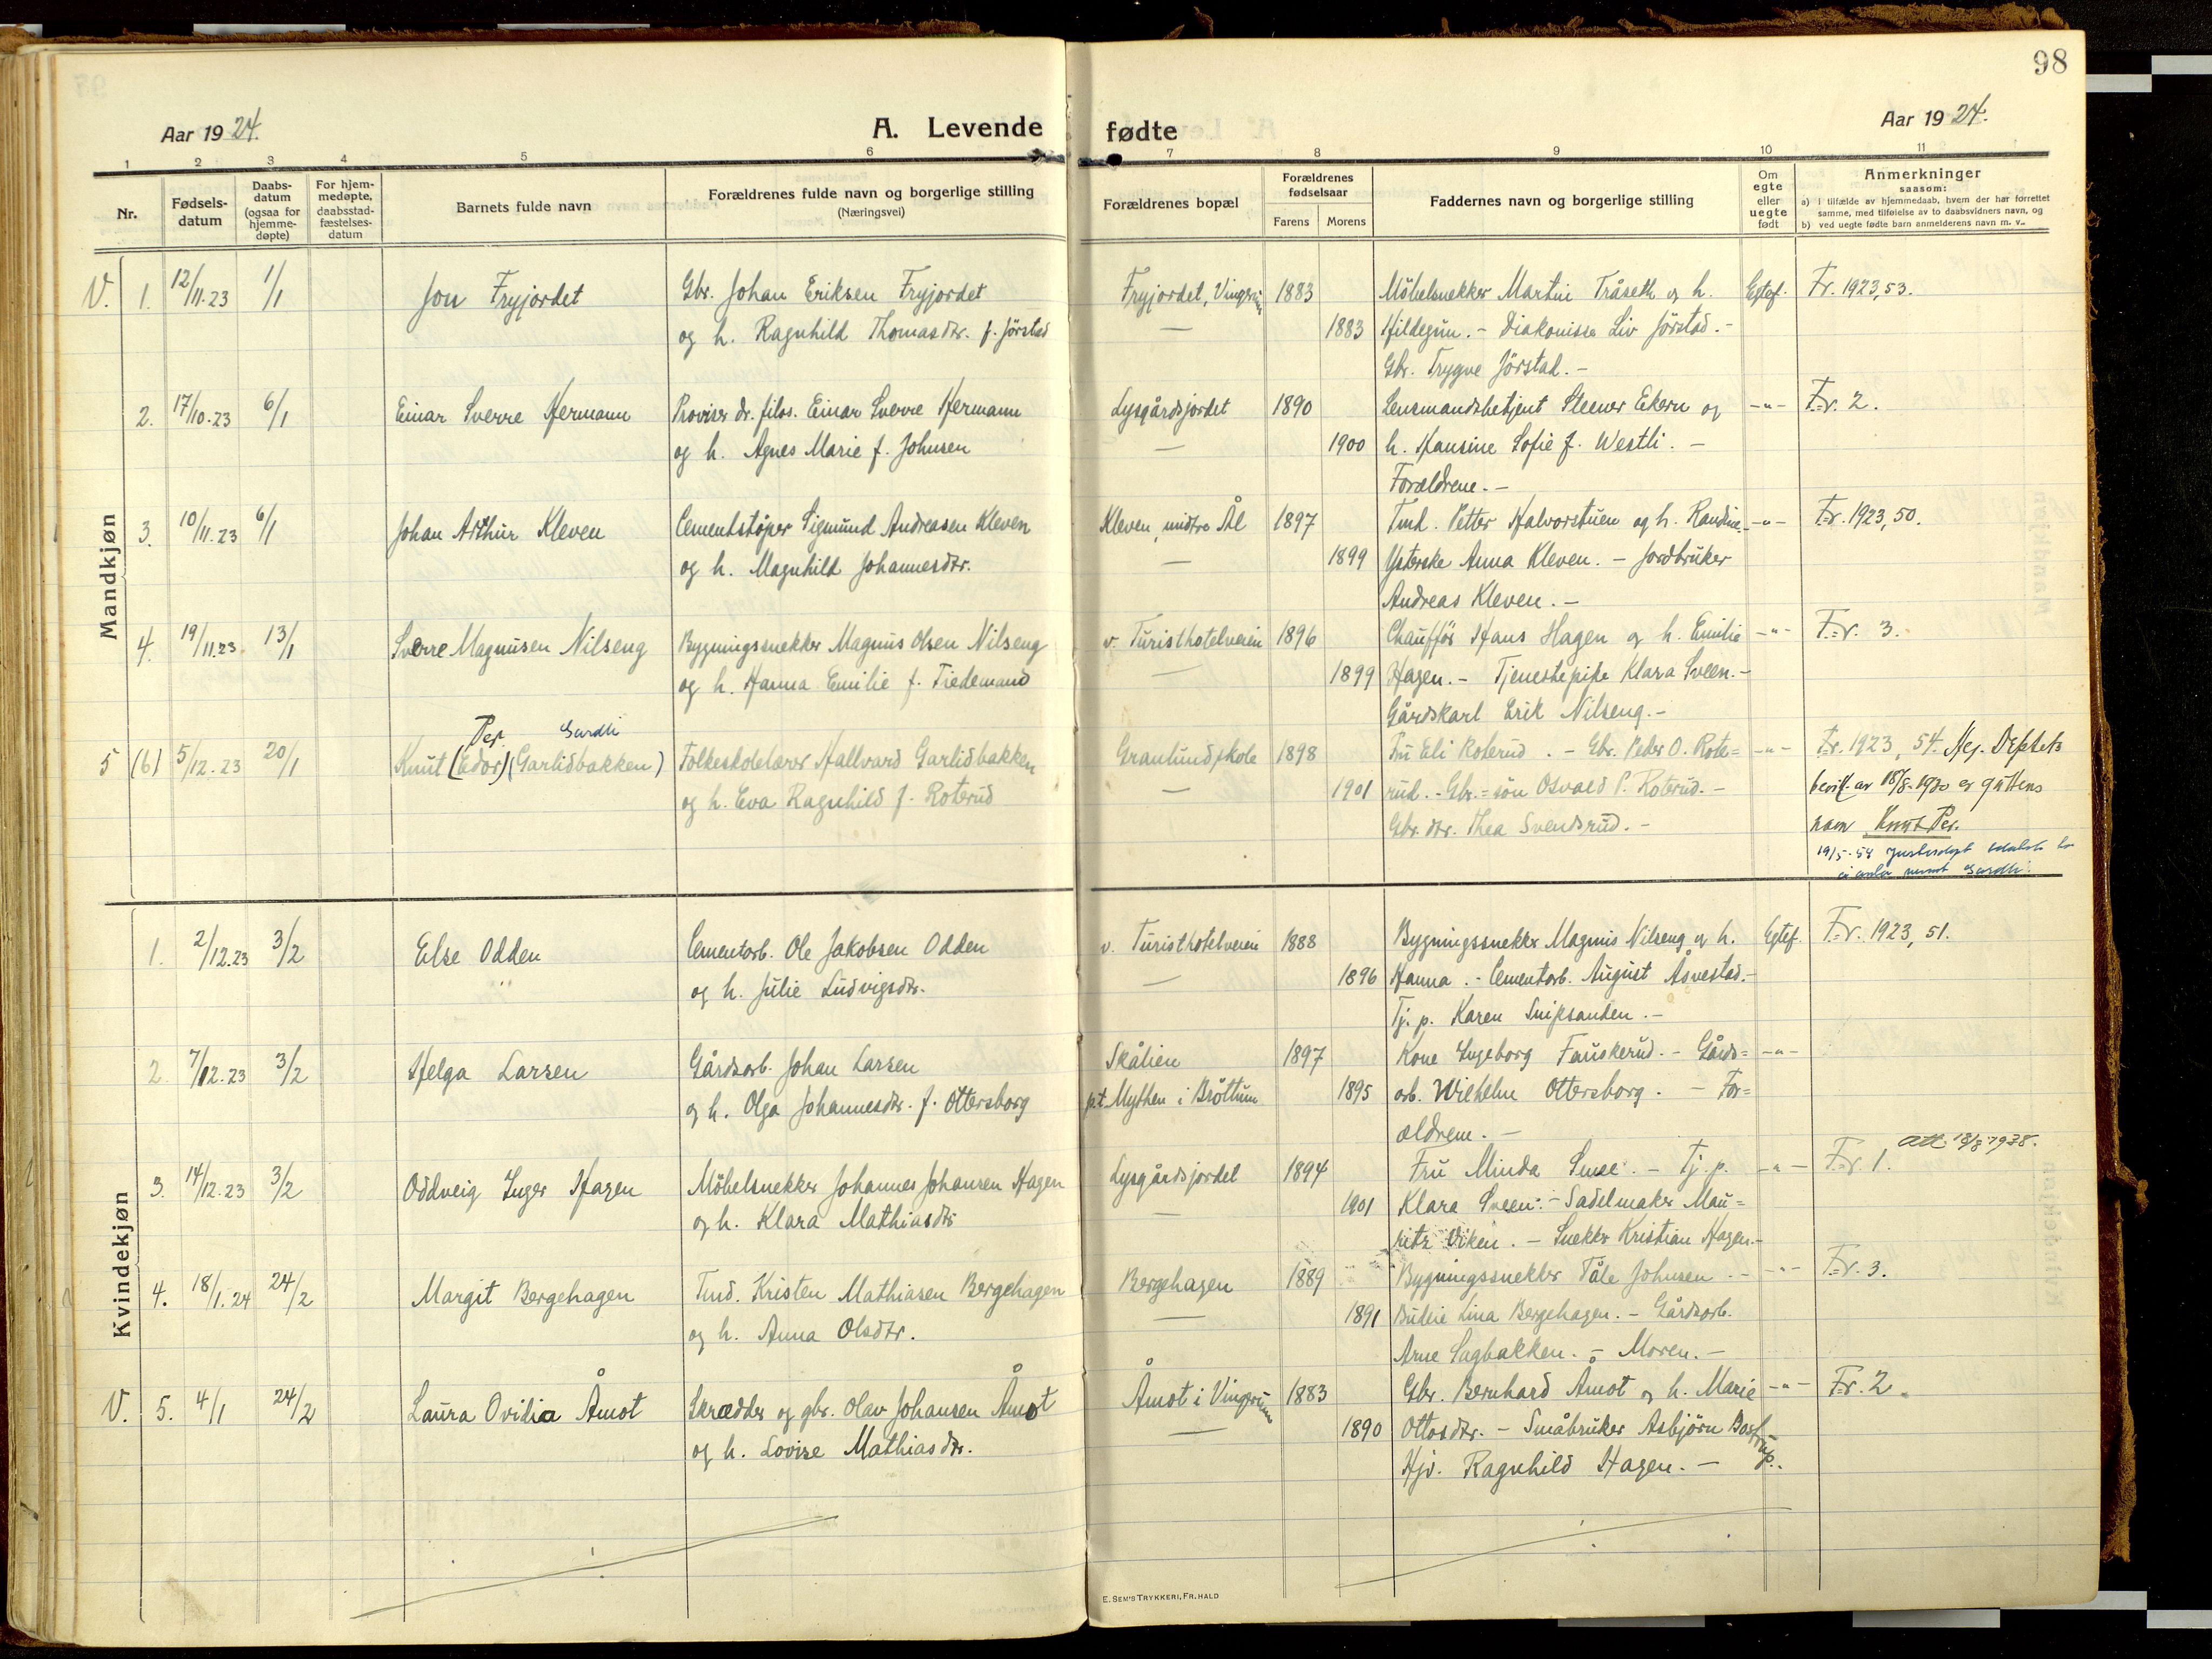 98
Aar 1924.
A. Levende fødte
Aar 1924.
1 2 3 4 5 6 7 8 9 10 11
Nr.
Fødsels-datum
Daabs-datum (ogsaa for hjemme-døpte)
For hjem-medøpte, daabsstad-fæstelses-datum
Barnets fulde navn
Forældrenes fulde navn og borgerlige stilling
(Næringsvei)
Forældrenes bopæl
Forældrenes fødselsaar
Farens Morens
Faddernes navn og borgerlige stilling
Om egte eller uegte født
Anmerkninger
saasom:
a) i tilfælde av hjemmedaab, hvem der har forrettet samme, med tilføielse av to daabsvidners navn, og
b) ved uegte fødte barn anmelderens navn m. v.
Mandkjøn
V. 1. 12/11.23 1/1 Jon Fryjordet Gbr. Johan Eriksen Fryjordet Fryjordet, Vingrom 1883 Möbelsnekker Martin Tråseth og h. Egtef. Fr. 1923,53.
og h. Ragnhild Thomasdtr. f. Jörstad — 1883 Hildegun. - Diakonisse Liv Jörstad. -
Gbr. Trygve Jörstad. -
2. 17/10.23 6/1 Einar Sverre Hermann Provisor dr. filos. Einar Sverre Hermann Lysgårdsjordet 1890 Lensmandsbetjent Steener Ekern og -"- Fr. 2.
og h. Agnes Marie f. Johnsen — 1900 h. Hansine Sofie f. Westli. -
Forældrene. -
3. 10/11.23 6/1 Johan Arthur Kleven Cementstøper Sigmund Andreasen Kleven Kleven, midtre Ål 1897 Tmd. Petter Halvorstuen og h. Randine. -"- Fr. 1923,50.
og h. Magnhild Johannesdtr. — 1899 Ysterske Anna Kleven. - Jordbruker
Andreas Kleven. -
4. 19/11.23 13/1 Sverre Magnusen Nilseng Bygningssnekker Magnus Olsen Nilseng v. Turisthotelveien 1896 Chaufför Hans Hagen og h. Emilie -"- Fr. 3.
og h. Hanna Emilie f. Tiedemand — 1899 Hagen. - Tjenestepike Klara Sveen. -
Gårdskarl Erik Nilseng. -
Per Gardli
5 (6) 5/12.23 20/1 Knut (Edor) (Garlidbakken) Folkeskolelærer Hallvard Garlidbakken Granlund skole 1898 Fru Eli Roterud. - Gbr. Peder O. Rote= -"- Fr. 1923, 54.
og h. Eva Ragnhild f. Roterud — 1901 rud. - Gbr.=sön Osvald P. Roterud. - bevill. av 18/8-1930 er guttens
Gbr. dtr. Thea Svendsrud. - navn Knut Per.
19/5-54
Gardli
Kvindekjøn
1. 2/12.23 3/2 Else Odden Cementarb. Ole Jakobsen Odden v. Turisthotelveien 1888 Bygningssnekker Magnus Nilseng og h. Egtef. Fr. 1923, 51.
og h. Julie Ludvigsdtr. — 1896 Hanna. - Cementarb. August Åsvestad. -
Tj. p. Karen Snipsanden. -
2. 7/12.23 3/2 Helga Larsen Gårdsarb. Johan Larsen Skålien 1897 Kone Ingeborg Fauskerud. - Gårds= -"-
og h. Olga Johannesdtr. f. Ottersborg p.t. Mythen i Bröttum 1895 arb. Wilhelm Ottersborg. - For=
ældrene. -
3. 14/12.23 3/2 Oddveig Inger Hagen Möbelsnekker Johannes Johansen Hagen Lysgårdsjordet 1894 Fru Minda Smee. - Tj. p. -"- Fr. 1. Att. 18/8 1938.
og h. Klara Mathiasdtr — 1901 Klara Sveen: - Sadelmaker Mau=
ritz Viken. - Snekker Kristian Hagen. -
4. 18/1.24 24/2 Margit Bergehagen Tmd. Kristen Mathiasen Bergehagen Bergehagen 1889 Bygningssnekker Tåle Johnsen. - -"- Fr. 3.
og h. Anna Olsdtr. — 1891 Budeie Lina Bergehagen. - Gårdsarb.
Arne Sagbakken. - Moren. -
V. 5. 4/1 24/2 Laura Ovidia Åmot Skrædder og gbr. Olav Johansen Åmot Åmot i Vingrom 1883 Gbr. Bernhard Åmot og h. Marie -"- Fr. 2.
og h. Lovise Mathiasdtr. — 1890 Ottosdtr. - Småbruker Asbjörn
Hjv. Ragnhild Hagen. -
E. SEM'S TRYKKERI, FR. HALD